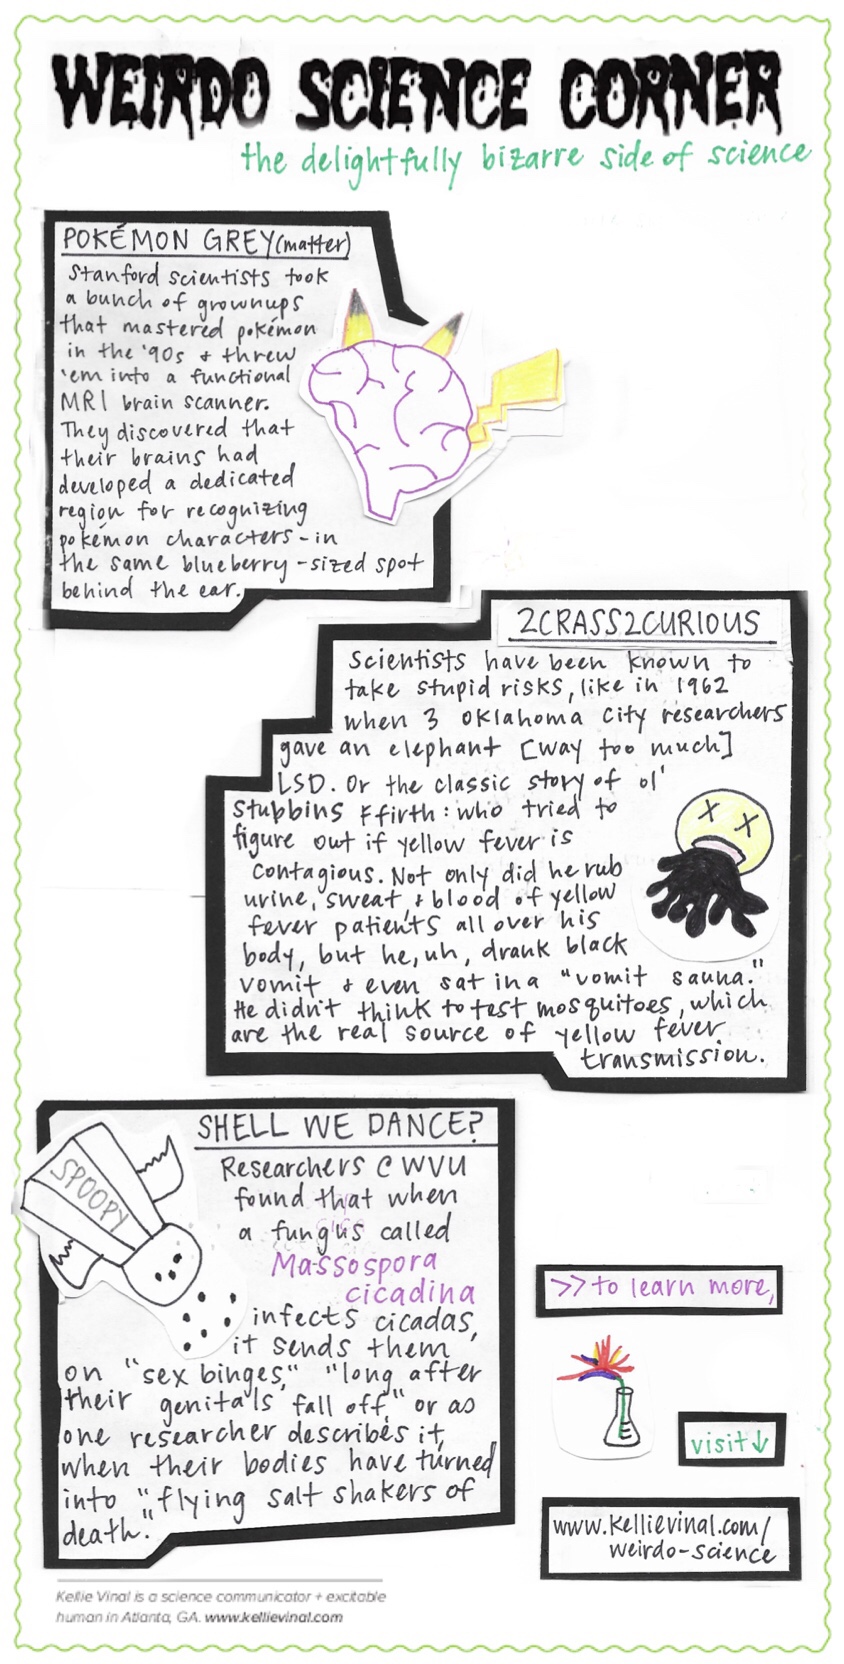 WEIRDO SCIENCE CORNER
the delightfully bizarre side of science
POKÉMON GREY (matter)
Stanford scientists took
a bunch of grownups
that mastered pokémon
in the '90s + threw
'em into a functional
MRI brain scanner.
They discovered that
their brains had
developed a dedicated
region for recognizing
pokémon characters - in
the same blueberry-sized spot
behind the ear.
2CRASS2CURIOUS
Scientists have been known to
take stupid risks, like in 1962
when 3 Oklahoma City researchers
gave an elephant [way too much]
LSD. Or the classic story of ol'
Stubbins Ffirth: who tried to
figure out if yellow fever is
contagious. Not only did he rub
urine, sweat, + blood of yellow
fever patients all over his
body, but he, uh, drank black
vomit + even sat in a "vomit sauna."
He didn't think to test mosquitoes, which
are the real source of yellow fever
transmission.
SHELL WE DANCE?
SPOOPY
Researchers @ WVU
found that when
a fungus called
Massospora
cicadina
infects cicadas,
it sends them
on "sex binges," "long after
their genitals fall off," or as
one researcher describes it,
when their bodies have turned
into "flying salt shakers of
death."
>> to learn more,
visit ↓
www.kellievinal.com/
weirdo-science
Kellie Vinal is a science communicator + excitable
human in Atlanta, GA. www.kellievinal.com